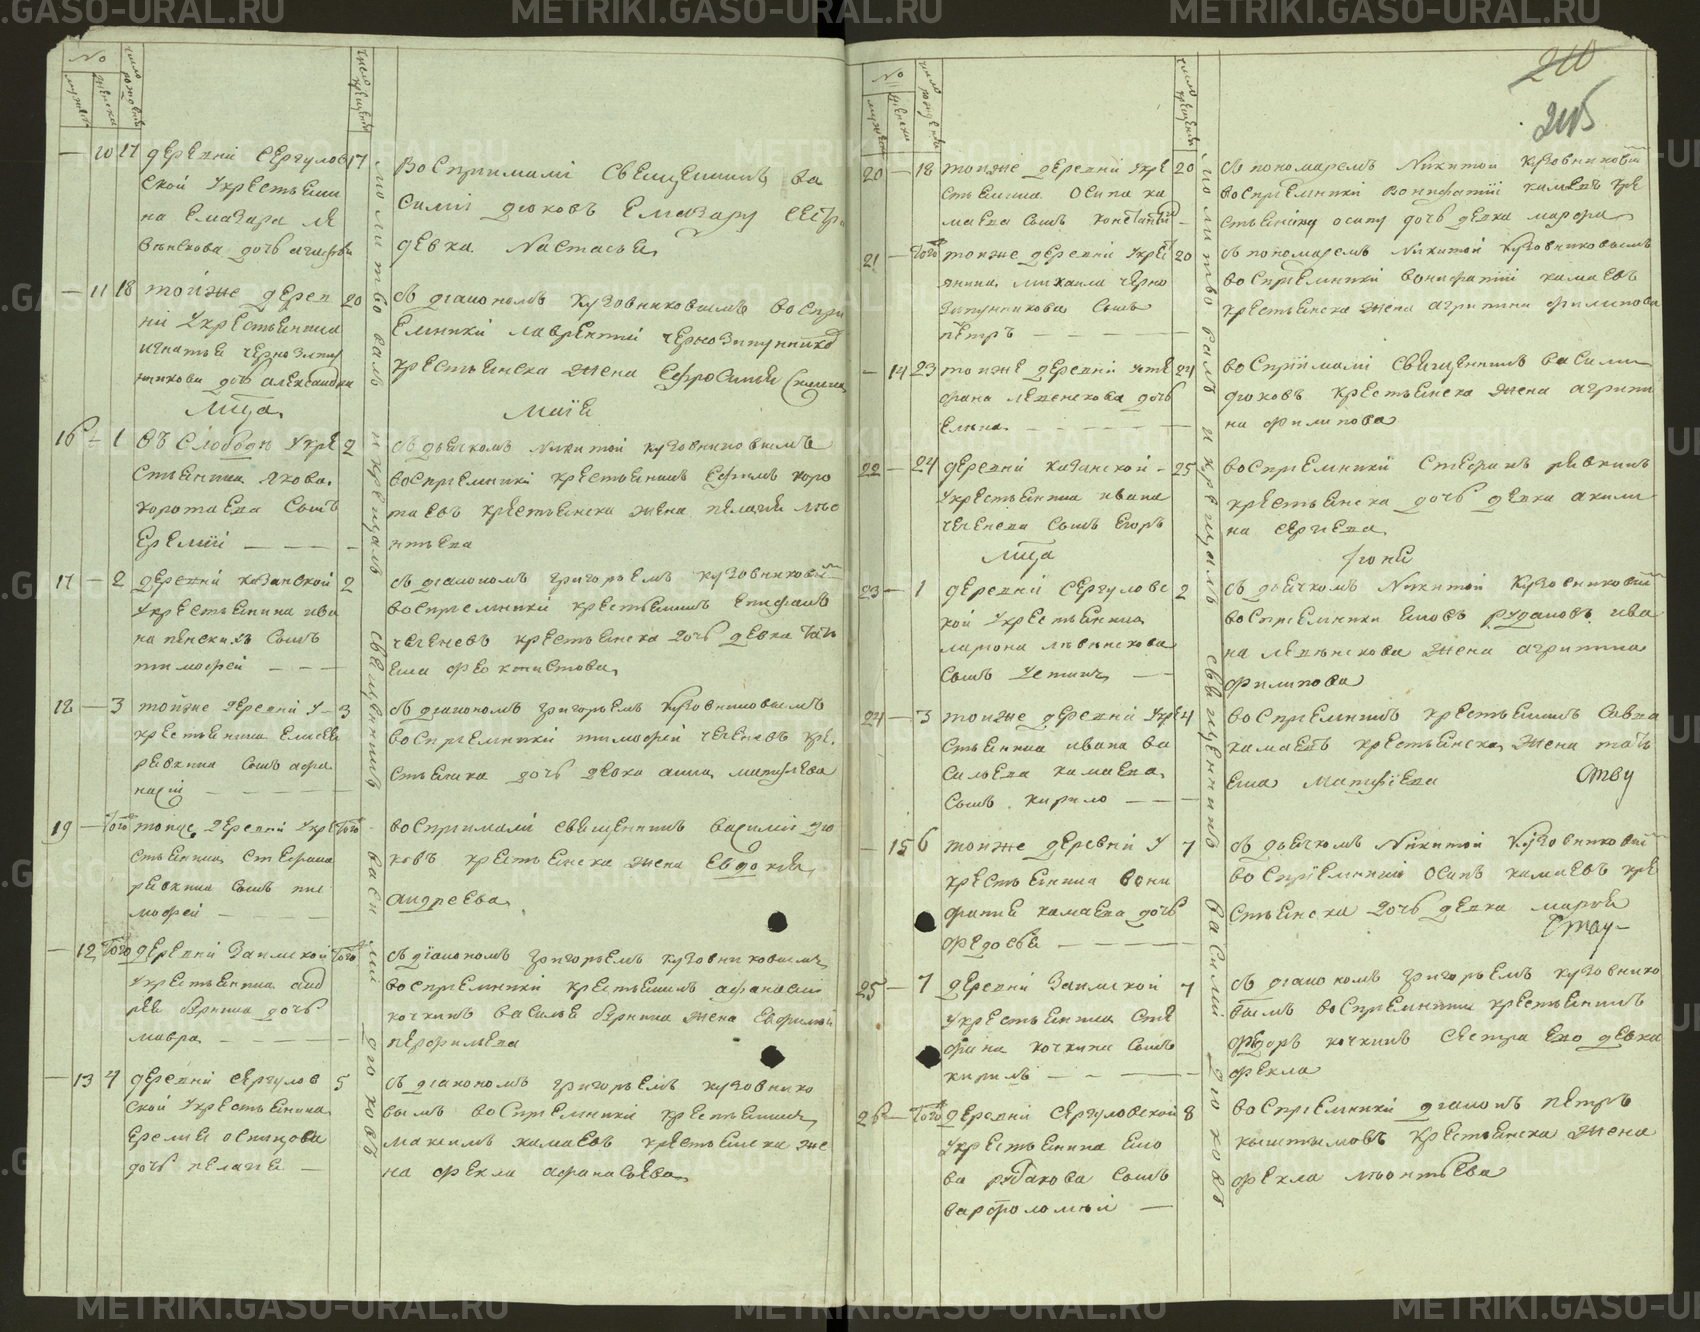 METRIKI.GASO-URAL.RU
№
мужеска
женска
число рождения
число крещения
10 17 деревни Сергулов 17
ской у крестьяни
на Елазара Ле
венскова дочь
восприимали священникъ Ва
силий Дюковъ Елазару сестра
девка Настасья
11 18 тойже дерев 20
ни у крестьянина
Игнатья Чернозипу
нникова дочь Александра
съ диакономъ Кузовниковымъ воспри
емники Лаврентий Чернозипунников
крестьянска жена Ефросинья
Мца
Маия
16 1 въ слободе у кре 2
стьянина Якова
Коротаева сынъ
Еремий
съ дьячкомъ Никитой Кузовниковымъ
восприемники крестьянинъ Ефимъ Коро
таевъ крестьянска жена Пелагея
17 2 деревни Казанской 2
у крестьянина Ива
на сынъ
Тимофей
съ диакономъ Григорьемъ Кузовниковым
восприемники крестьянинъ Епифанъ
Чегеневъ крестьянска дочь девка Тать
яна Феоктистова
18 3 тойже деревни у 3
крестьянина Елисея
Ревкина сынъ Афа
насий
съ диакономъ Григорьемъ Кузовниковымъ
восприемники Тимофей Чегеневъ кре
стьянска дочь девка Анна Матфеева
19 Того тойже деревни у кре Того
стьянина Стефана
Ревкина сынъ Ти
мофей
восприимали священникъ Василий Дю
ковъ крестьянска жена Евдокия
Андреева
12 Того деревни Заимской Того
у крестьянина Анд
рея дочь
Мавра
съ диакономъ Григорьемъ Кузовниковымъ
восприемники крестьянинъ Афанасий
Кочкинъ Василья жена
Перфильева
13 4 деревни Сергулов 5
ской у крестьянина
Еремея Осинцова
дочь Пелагея
съ диакономъ Григорьемъ Кузовнико
вымъ восприемники крестьянинъ
Максимъ Камаевъ крестьянска же
на Фекла Афанасьева
молитвовалъ и крещалъ священникъ Василий Дюковъ
210
215
№
мужеска
женска
число рождения
число крещения
20 18 тойже деревни у кре 20
стьянина Осипа Ка
маева сынъ Константин
съ пономаремъ Никитой Кузовниковым
восприемники Вонифатий Камаевъ кре
стьянину Осипу дочь девка Марфа
21 Того тойже деревни у крес 20
янина Михаила Черно
зипунникова сынъ
Петръ
съ пономаремъ Никитой Кузовниковымъ
восприемники Вонифатий Камаевъ
крестьянска жена Агрипина Филипова
14 23 тойже деревни у Сте 24
фана Левенскова дочь
Елена
восприимали священникъ Васили
Дюковъ крестьянска жена Агрипи
на Филипова
22 24 деревни Казанской 25
у крестьянина Ивана
Чегенева сынъ Егоръ
восприемники Стефанъ Ревкинъ
крестьянска дочь девка Акили
на Сергиева
Мца
Iюня
23 1 деревни Сергуловс 2
кой у крестьянина
Лариона Левенскова
сынъ
съ дьячкомъ Никитой Кузовниковым
восприемники Иовъ Рудаковъ Ива
на Левенскова жена Агрипина
Филипова
24 3 тойже деревни у кре 4
стьянина Ивана Ва
сильева Камаева
сынъ Кирило
восприемникъ крестьянинъ Савва
Камаевъ крестьянска жена Тать
яна Матфиева
15 6 тойже деревни у 7
крестьянина Вони
фатия Камаева дочь
Федосья
съ дьячкомъ Никитой Кузовниковым
восприемники Осипъ Камаевъ кре
стьянска дочь девка Марфа
25 7 деревни Заимской 7
у крестьянина Сте
фана Кочкина сынъ
Кирилъ
съ диакономъ Григорьемъ Кузовнико
вымъ восприемники крестьянинъ
Федоръ Кочкинъ сестра ево девка
Фекла
26 Того деревни Сергуловской 8
у крестьянина Ио
ва Рудакова сынъ
Варфоломей
восприемники диаконъ Петръ
Кыштымовъ крестьянска жена
Фекла Леонтьева
молитвовалъ и крещалъ священникъ Василий Дюковъ